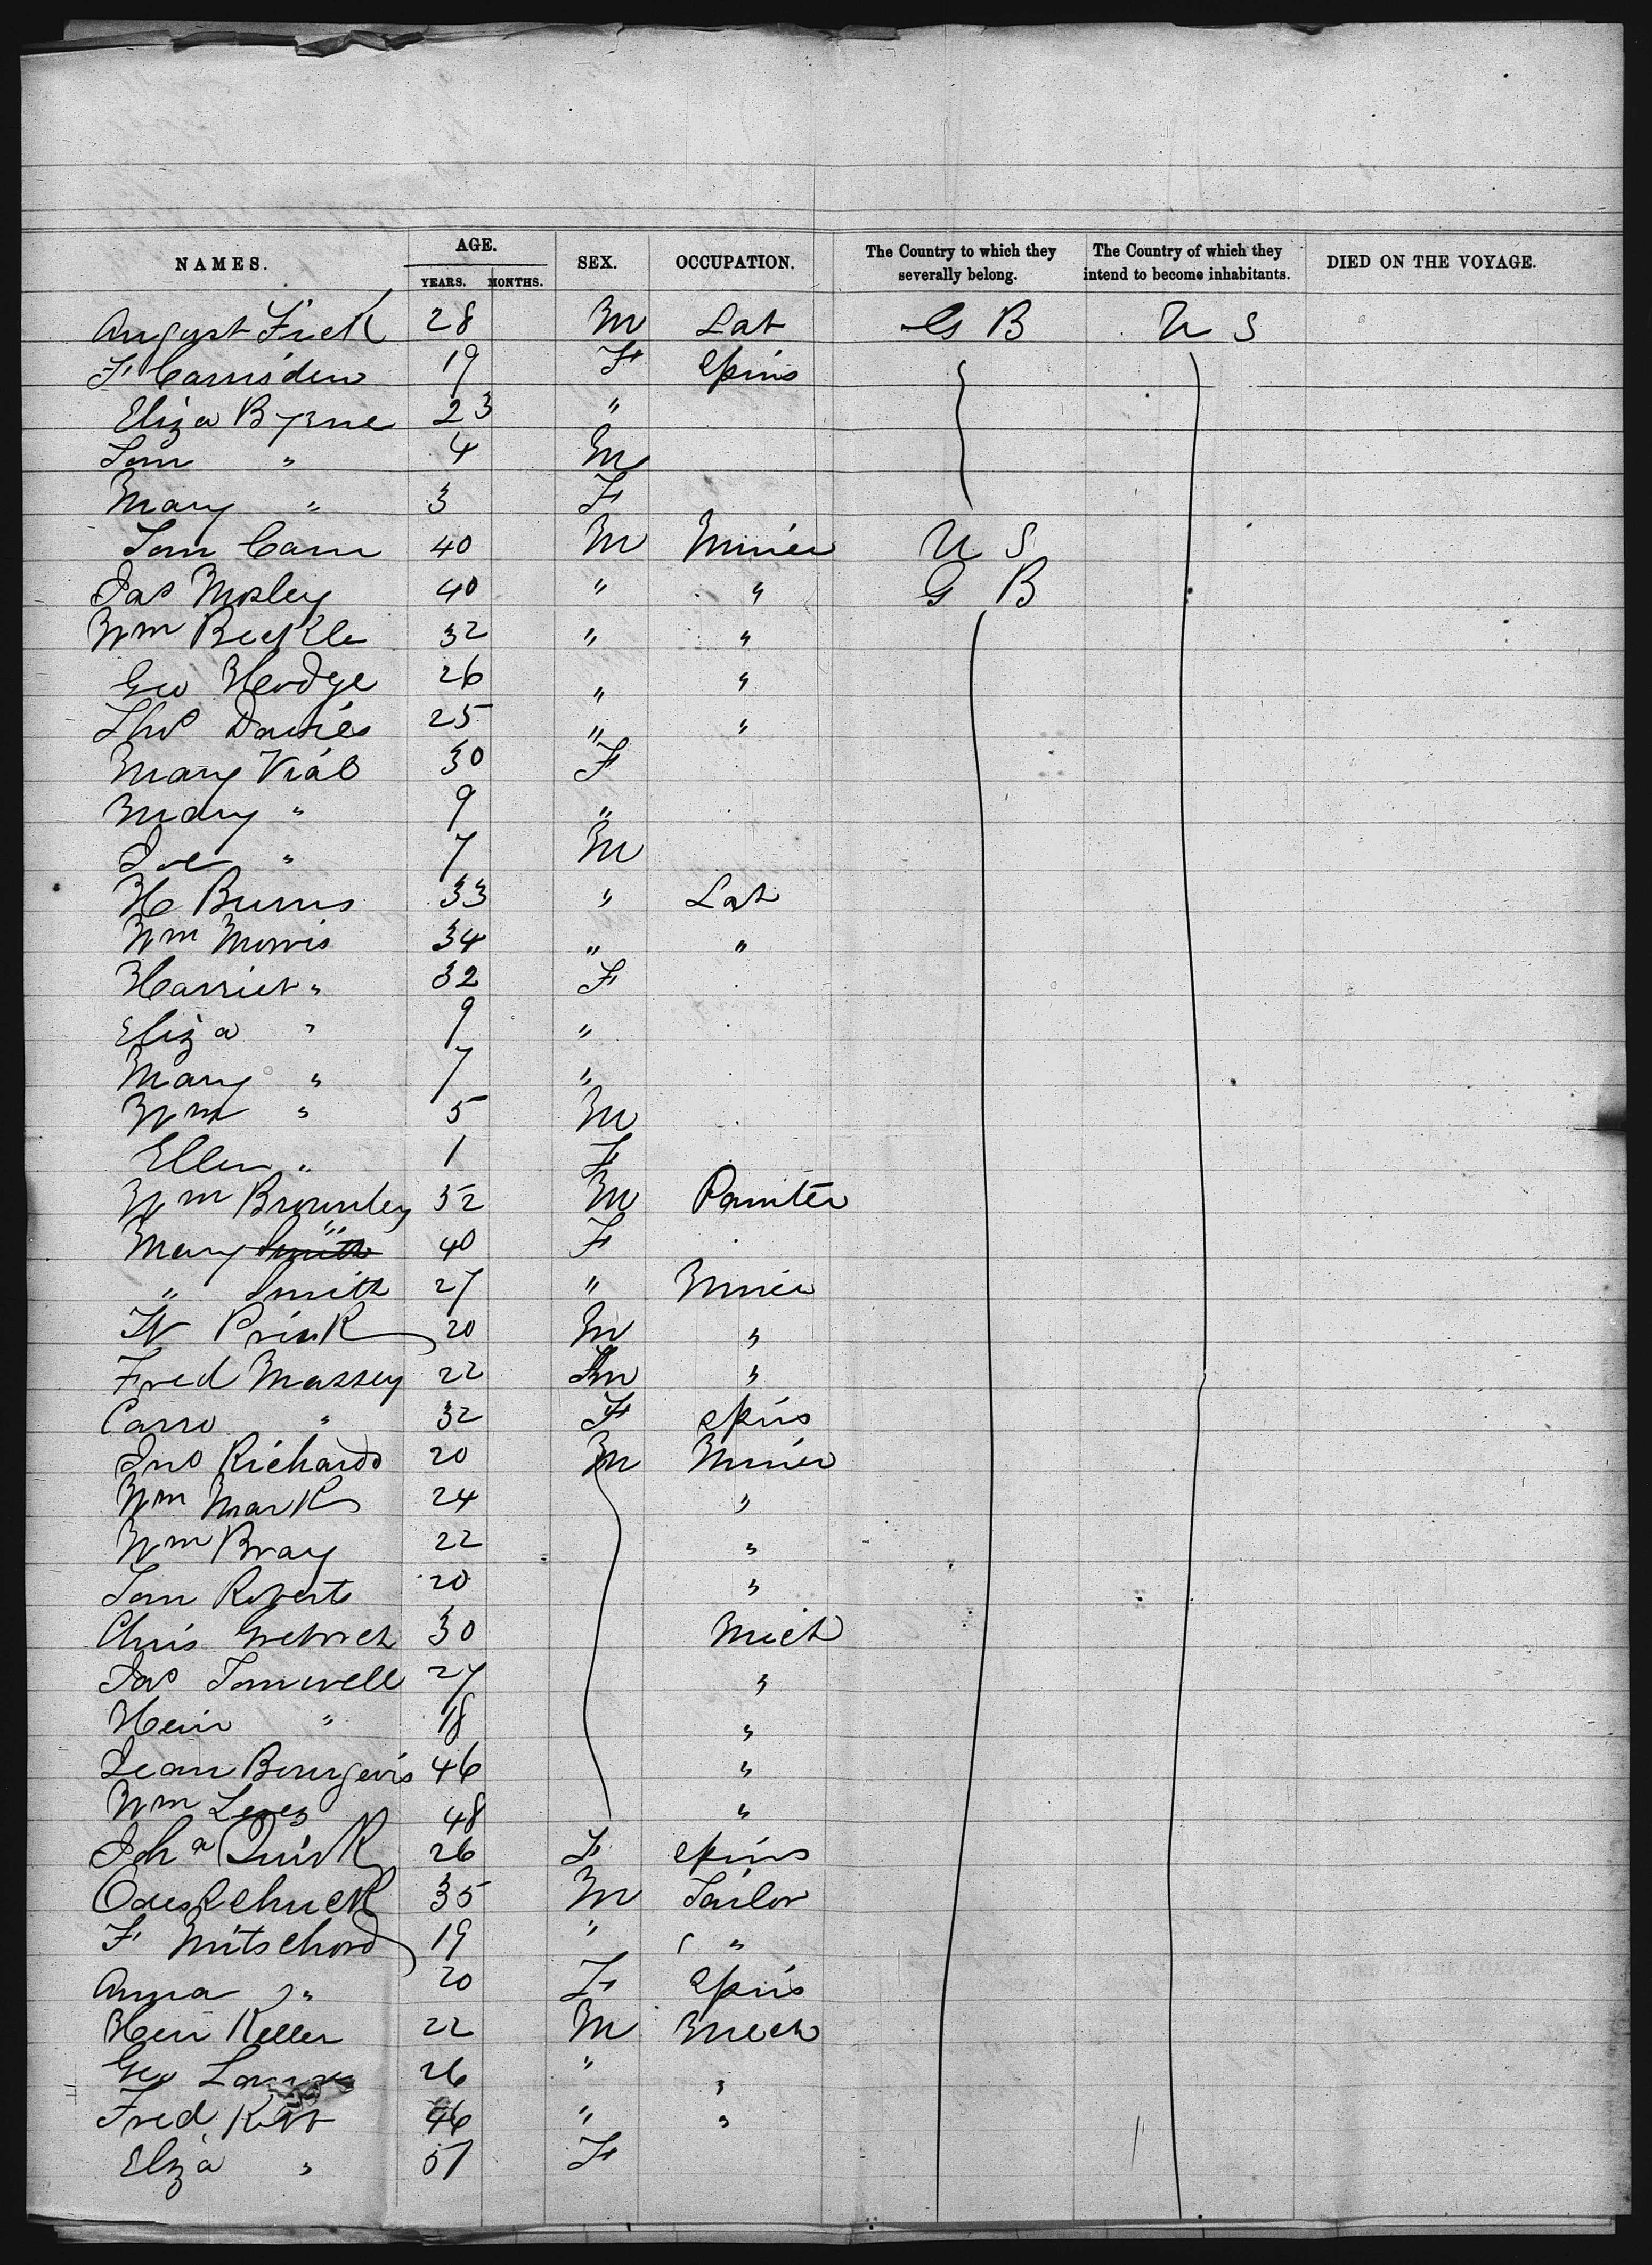 NAMES. AGE. YEARS. MONTHS. SEX. OCCUPATION. The Country to which they severally belong. The Country of which they intend to become inhabitants. DIED ON THE VOYAGE.
August Fick 28 M Lab G B U S
F Carrisden 19 F Spins
Eliza Byrne 23 "
Tom " 4 M
Mary " 3 F
Tom Cam 40 M Miner U S
Jas Mosley 40 " " G B
Wm Beckle 32 " "
Geo Hodge 26 " "
Thos Davies 25 " "
Mary Vial 30 F
Mary " 9 "
Joe " 7 M
H Burns 33 " Lab
Wm Morris 34 " "
Harriet " 32 F
Eliza " 9 "
Mary " 7 "
Wm " 5 M
Ellen " 1 F
Wm Brownley 52 M Painter
Mary " 40 F
" Smith 27 " Miner
W Prink 20 M "
Fred Massey 22 M "
Carro " 32 F Spins
Jno Richards 20 M Miner
Wm Mark 24 "
Wm Bray 22 "
Tom Roberts 20 "
Chris 30 Mech
Jas Tomwell 27 "
Hein " 18 "
Jean Bourgeois 46 "
Wm 48 "
Joha Quirk 26 F Spins
Schuck 35 M Tailor
F Mitschord 19 " "
Anna " 20 F Spins
Hen Keller 22 M Mech
Geo 26 " "
Fred Kitt 46 " "
Eliza " 51 F